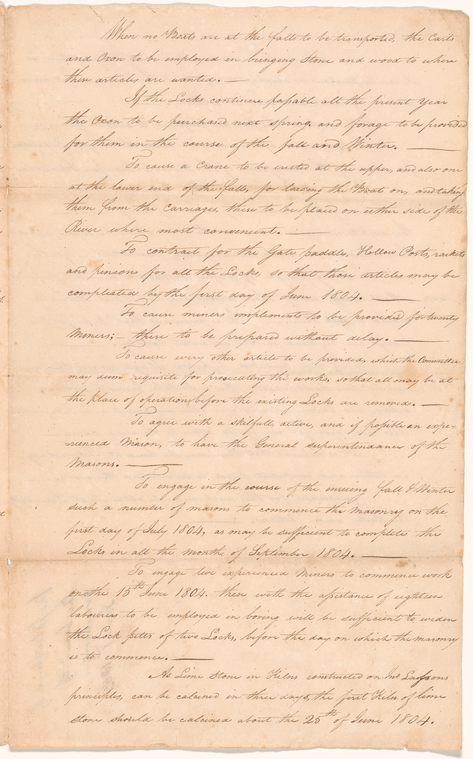 When no Boats are at the falls to be transported, the Carts
and Oxen to be employed in bringing Stone and wood to where
these articles are wanted. —
If the Locks continue passable all the present Year
the Oxen to be purchased next spring, and forage to be provided
for them in the course of the fall and Winter. —
To cause a Crane to be erected at the upper, and also one
at the lower end of the falls, for loading the Boats on, and taking
them from the Carriages, these to be placed on either side of the
River where most convenient. —
To contract for the Gate paddles, Hollow Posts, racks
and pinions for all the Locks, so that those articles may be
compleated by the first day of June 1804. —
To cause miners implements to be provided for twenty
Miners; — these to be prepared without delay. —
To cause every other article to be provided which the Committee
may deem requisite for prosecuting the works, so that all may be at
the place of operation before the existing Locks are removed. —
To agree with a skilfull, active, and if possible an expe-
rienced Mason, to have the General superintendance of the
Masons. —
To engage in the course of the ensuing fall & Winter
such a number of masons to commence the Masonry on the
first day of July 1804, as may be sufficient to complete the
Locks in all the month of September 1804. —
To engage two experienced Miners to commence work
on the 15th June 1804. these with the assistance of eighteen
labourers to be employed in boring will be sufficient to widen
the Lock pitts of two Locks, before the day on which the masonry
is to commence. —
As Lime Stone in Kilns constructed on
principles, can be calcined in three days, the first Kiln of lime
stone should be calcined about the 25th of June 1804.